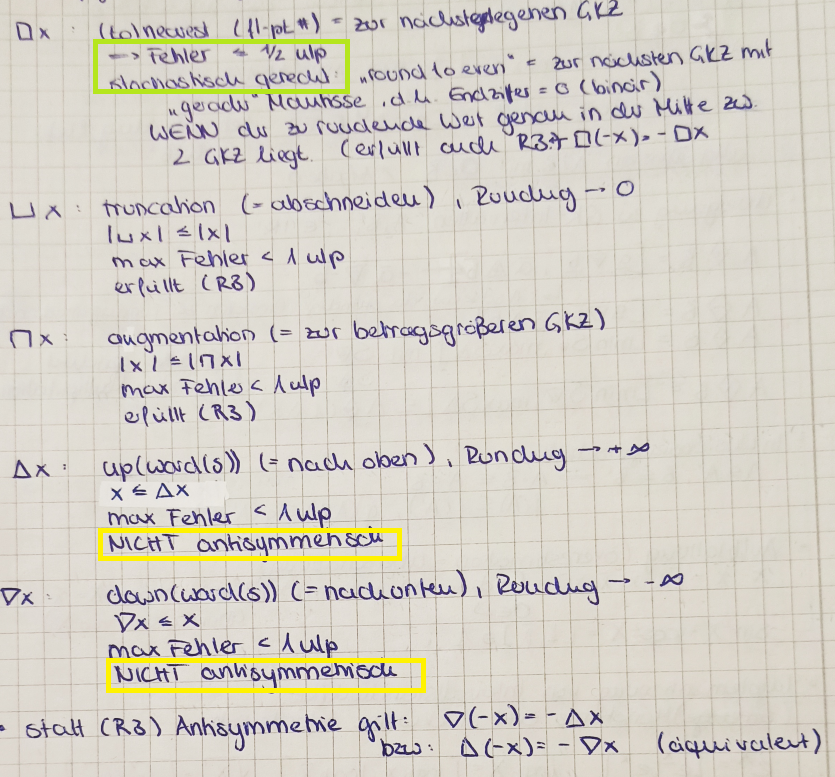 □x : (to)nearest (fl-pt #) = zur nächstgelegenen GKZ
→ Fehler ≤ 1/2 ulp
stochastisch gerecht: „round to even" = zur nächsten GKZ mit
„gerader" Mantisse, d.h. Endziffer = 0 (binär)
WENN der zu rundende Wert genau in der Mitte zw.
2 GKZ liegt. (erfüllt auch R3: □(-x) = -□x
⊔x : truncation (= abschneiden), Rundug → 0
|⊔x| ≤ |x|
max Fehler < 1 ulp
erfüllt (R3)
⊓x : augmentation (= zur betragsgrößeren GKZ)
|x| ≤ |⊓x|
max Fehler < 1 ulp
efüllt (R3)
Δx : up(ward(s)) (= nach oben), Rundug → +∞
x ≤ Δx
max Fehler < 1 ulp
NICHT antisymmetrisch
∇x : down(ward(s)) (= nach unten), Rundug → -∞
∇x ≤ x
max Fehler < 1 ulp
NICHT antisymmetrisch
• statt (R3) Antisymmetrie gilt: ∇(-x) = -Δx
bzw: Δ(-x) = -∇x (äquivalent)